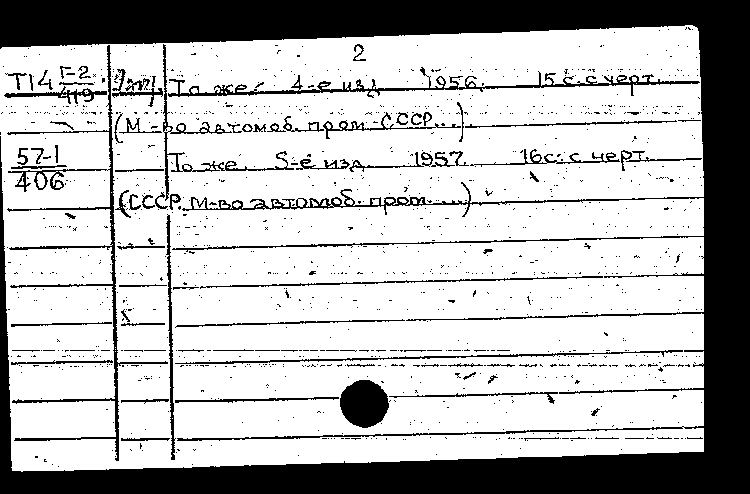 2
Т14 Г-2/419 То же. 4-е изд. 1956. 15 с. с черт.
(М-во автомоб. пром. СССР...)
57-1/406 То же. 5-е изд. 1957. 16 с. с черт.
(СССР. М-во автомоб. пром. ...)